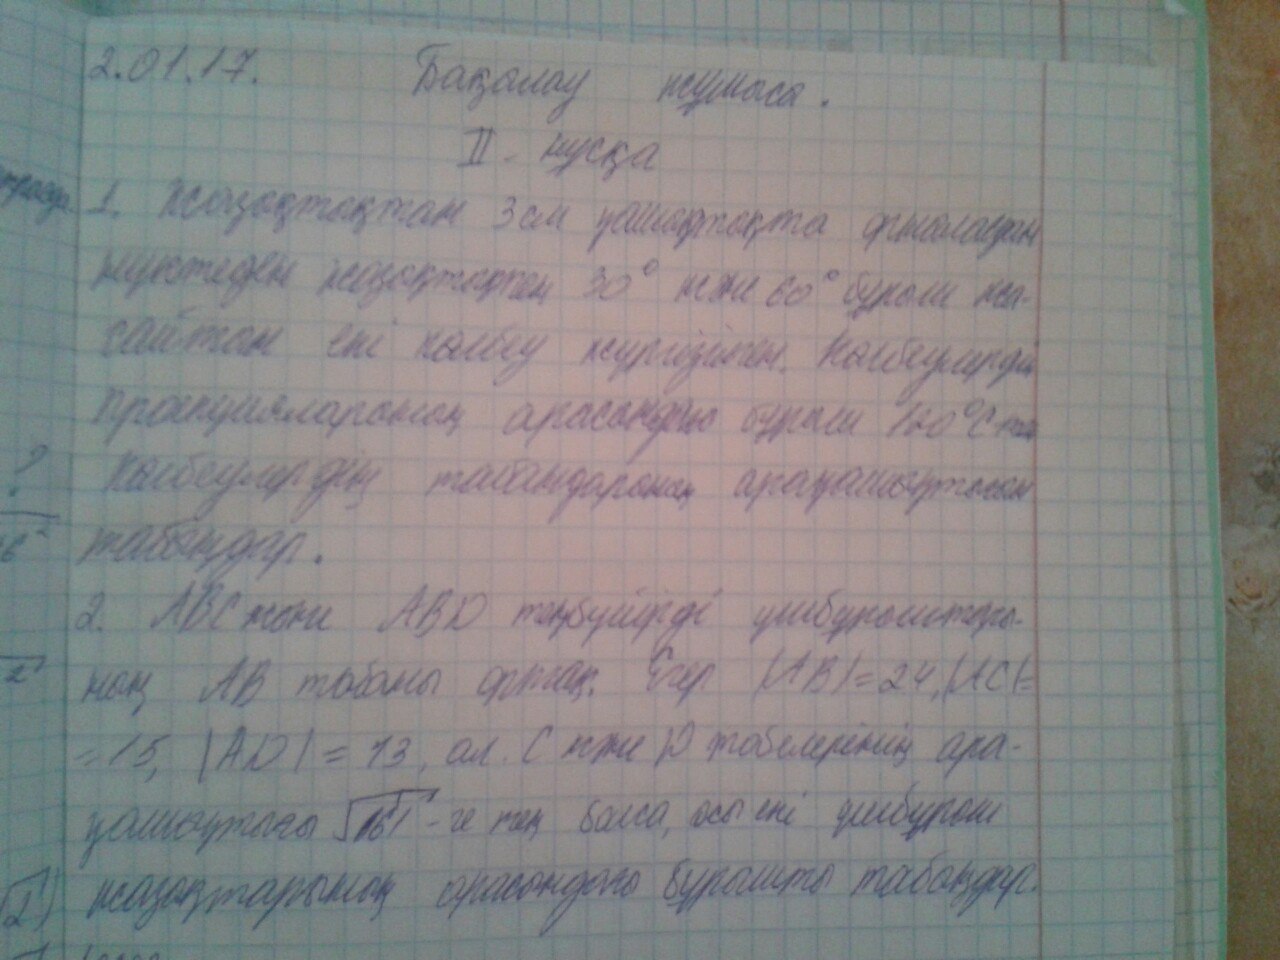 2.01.17. Бақалау жұмысы.
II - нұсқа
1. Жазықтықтан 3 см қашықтықта орналасқан
нүктеден жазықтықпен 30° және 60° бұрыш жа-
сайтын екі көлбеу жүргізілген. Көлбеулердің
проекцияларының арасындағы бұрыш 120°С тең
Көлбеулердің табандарының арақашықтығын
табыңдар.
2. ABC және ABD теңбүйірлі үшбұрыштары-
ның AB табаны ортақ. Егер |AB|=24, |AC|=
=15, |AD|=13, ал. C және D төбелерінің ара-
қашықтығы √161 -ге тең болса, осы екі үшбұрыш
жазықтарының арасындағы бұрышты табыңдар.